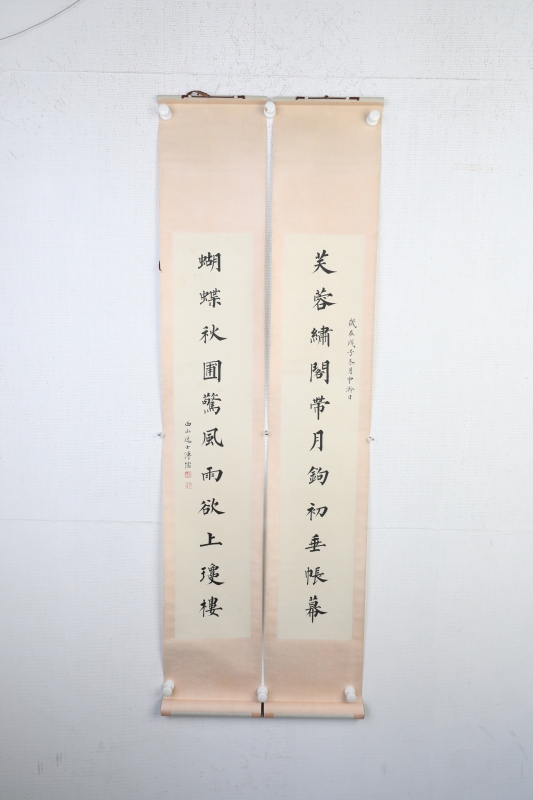 芙蓉繡閣帶月鉤初垂帳幕
歲在戊子冬月中澣日
蝴蝶秋圃驚風雨欲上瓊樓
西山逸士溥儒